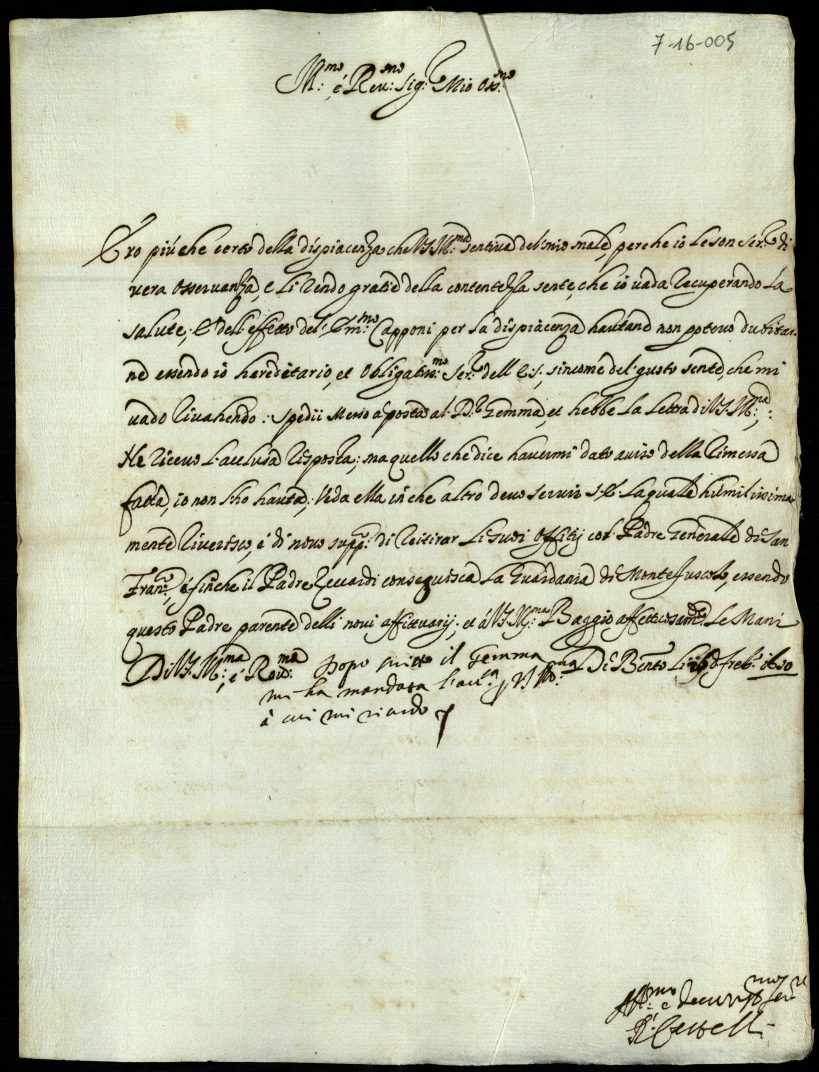 7-16-005
M.mo é Reu.mo Sig.re Mio Oss.mo
Ero piú che certo della dispiacenza che V.S. Ill.ma sentiua del mio male, perche io le son Ser.re di
uera osseruanza, e li rendo gratie della contentezza sente, che io uada recuperando la
salute; Et dell'effetto del Em.mo Capponi per la dispiacenza hautane non poteuo dubitar-
ne essendo io hereditario, et obligatiss.mo Ser.re dell' E.S.; sincome del gusto sente, che mi
uado riuahendo: spedii messo á posta al P.re Gemma, et hebbe la lettra di V.S. Ill.ma;
Ne riceuo l'acclusa risposta; ma quello che dice hauermi dato auiso della rimessa
fatta, io non l'ho hauuta; Veda ella in che altro deuo seruir S.E. la quale humilissima-
mente riuerisco, é di nouo supp.co di reiterar li suoi offitij col Padre Generale di San
Fran.co, á finche il Padre Riccardi conseguisca la Guardiania di Montefuscolo, essendo
questo Padre parente delli noui affittuarij; et á V.S. Ill.ma Baggio affettuosam.te le Mani
Di V.S. Ill.ma, é Reu.ma Di Ben.to li 16 di Feb.o 1650
Dopo scritto il Gemma
mi ha mandata l'acc.a p V.S. Ill.ma
á cui mi riuerdo
Aff.mo e deuotiss.mo ser.re
P. Castelli